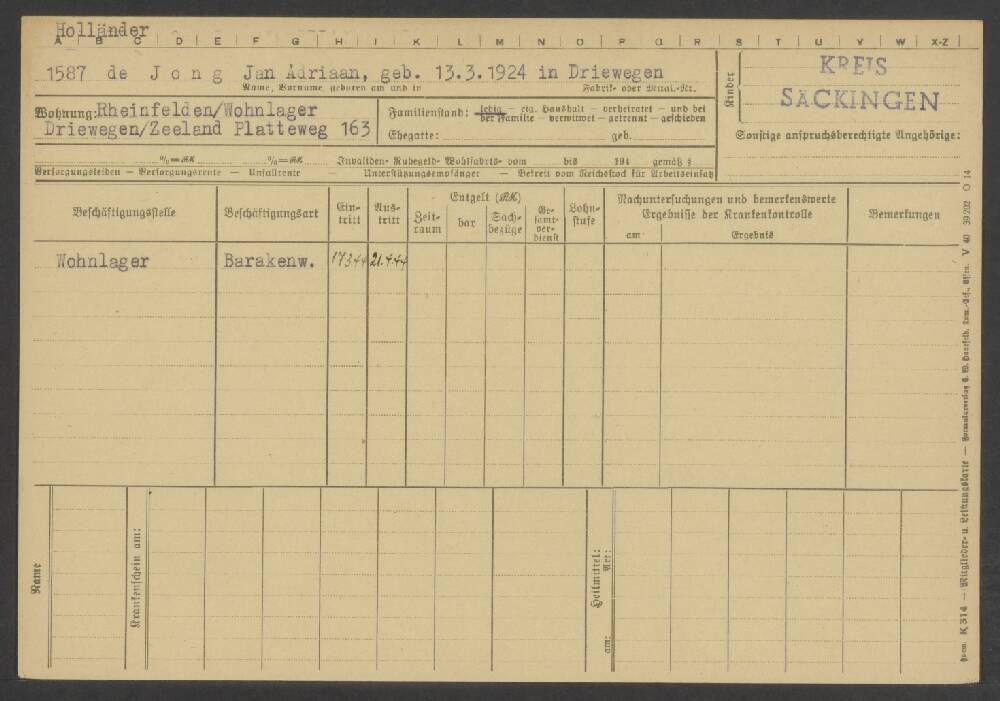 Holländer
A B C D E F G H I K L M N O P Q R S T U V W X-Z
1587 de Jong Jan Adriaan, geb. 13.3.1924 in Driewegen
Name, Vorname, geboren am und in
Fabrik- oder
Kinder
KREIS
SÄCKINGEN
Wohnung: Rheinfelden/Wohnlager
Driewegen/Zeeland Platteweg 163
Familienstand: ledig — eig. Haushalt — verheiratet — und bei
der Familie — verwitwet — getrennt — geschieden
Ehegatte: geb.
Sonstige anspruchsberechtigte Angehörige:
%=RK %=RK Invaliden- Ruhegeld- Wohlfahrts- vom bis 194 gemäß §
Versorgungsleiden — Versorgungsrente — Unfallrente — Unterstützungsempfänger — Befreit vom Reichsstock für Arbeitseinsatz
Beschäftigungsstelle
Beschäftigungsart
Ein-
tritt
Aus-
tritt
Entgelt (RK)
Zeit-
raum
bar
Sach-
bezüge
Ge-
samt-
ver-
dienst
Lohn-
stufe
Nachuntersuchungen und bemerkenswerte
Ergebnisse der Krankenkontrolle
am
Ergebnis
Bemerkungen
Wohnlager Barakenw. 17344 21.4.44
Name
Krankenschein am:
Heilmittel:
Art:
am:
Form. K 314 — Mitglieder- u. Leistungskarte — Formularverlag V 40 39202 O 14